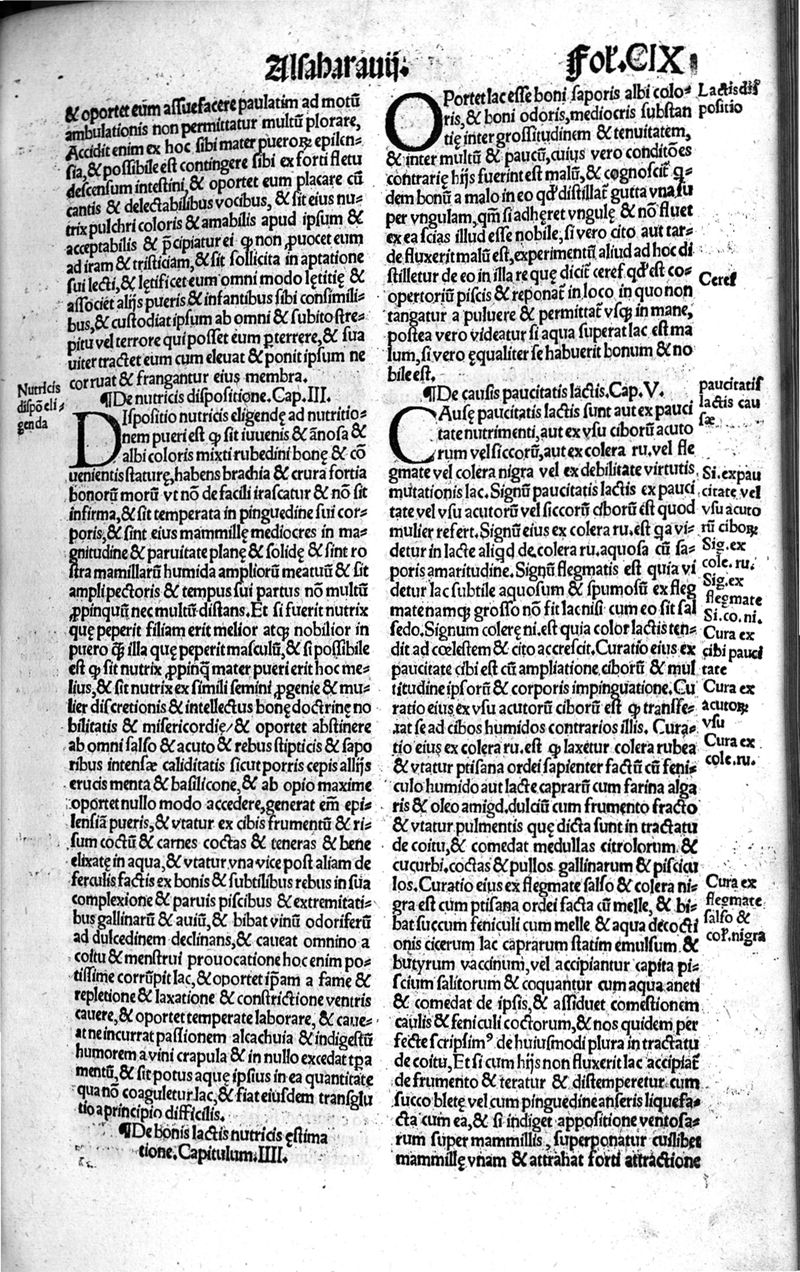 Alsaharauij.
Fol. CIX
& oportet eum assuefacere paulatim ad motū
ambulationis non permittatur multū plorare,
Accidit enim ex hoc sibi mater pueroꝝ epilen-
sia, & possibile est contingere sibi ex forti fletu
descensum intestini, & oportet eum placare cū
cantis & delectabilibus vocibus, & sit eius nu-
trix pulchri coloris & amabilis apud ipsum &
acceptabilis & p̄cipiatur ei ꝙ non ꝓuocet eum
ad iram & tristiciam, & sit sollicita in aptatione
sui lecti, & lętificet eum omni modo lętitię &
associet alijs pueris & infantibus sibi consimili-
bus, & custodiat ipsum ab omni & subito stre-
pitu vel terrore qui posset eum ꝑterrere, & sua
uiter tractet eum cum eleuat & ponit ipsum ne
corruat & frangantur eius membra.
¶De nutricis dispositione. Cap. III.
Nutricis
dispō eli-
genda
DIspositio nutricis eligendę ad nutritio-
nem pueri est ꝙ sit iuuenis & ānosa &
albi coloris mixti rubedini bonę & cō
uenientis staturę, habens brachia & crura fortia
bonorū morū vt nō de facili irascatur & nō sit
infirma, & sit temperata in pinguedine sui cor-
poris, & sint eius mammillę mediocres in ma-
gnitudine & paruitate planę & solidę & sint ro
stra mamillarū humida ampliorū meatuū & sit
ampli pectoris & tempus sui partus nō multū
ꝓpinquū nec multū distans. Et si fuerit nutrix
quę peperit filiam erit melior atqꝫ nobilior in
puero ꝙ̄ illa quę peperit masculū, & si possibile
est ꝙ sit nutrix ꝓpinqꝫ mater pueri erit hoc me-
lius, & sit nutrix ex simili semini ꝓgenie & mu-
lier discretionis & intellectus bonę doctrinę no
bilitatis & misericordię/& oportet abstinere
ab omni salso & acuto & rebus stipticis & sapo
ribus intensæ caliditatis sicut porris cepis allijs
erucis menta & basilicone, & ab opio maxime
oportet nullo modo accedere, generat em̄ epi-
lensiā pueris, & vtatur ex cibis frumentū & ri-
sum coctū & carnes coctas & teneras & bene
elixatę in aqua, & vtatur vna vice post aliam de
ferculis factis ex bonis & subtilibus rebus in sua
complexione & paruis piscibus & extremitati-
bus gallinarū & auiū, & bibat vinū odoriferū
ad dulcedinem declinans, & caueat omnino a
coitu & menstrui prouocatione hoc enim po-
tissime corrūpit lac, & oportet ip̄am a fame &
repletione & laxatione & constrictione ventris
cauere, & oportet temperate laborare, & caue-
at ne incurrat passionem alcachuia & indigestū
humorem a vini crapula & in nullo excedat tꝑa
mentū, & sit potus aquę ipsius in ea quantitate
qua nō coaguletur lac, & fiat eiusdem transglu
tio a principio difficilis.
¶De bonis lactis nutricis ęstima
tione. Capitulum. IIII.
OPortet lac esse boni saporis albi colo-
ris, & boni odoris, mediocris substan
tię inter grossitudinem & tenuitatem,
& inter multū & paucū, cuius vero conditōes
contrarię hijs fuerint est malū, & cognoscit̃ q̄-
dem bonū a malo in eo qđ distillat̃ gutta vna su
per vngulam, qm̄ si adhęret vngulę & nō fluet
ex ea scias illud esse nobile, si vero cito aut tar-
de fluxerit malū est, experimentū aliud ad hoc di
stilletur de eo in illa re quę dicit̃ ceref qđ est co-
opertoriū piscis & reponat̃ in loco in quo non
tangatur a puluere & permittat̃ vsqꝫ in mane,
postea vero videatur si aqua superat lac est ma
lum, si vero ęqualiter se habuerit bonum & no
bile est.
Lactis dis
positio
Ceref
¶De causis paucitatis lactis. Cap. V.
CAusę paucitatis lactis sunt aut ex pauci
tate nutrimenti, aut ex vsu ciborū acuto
rum vel siccorū, aut ex colera ru. vel fle
gmate vel colera nigra vel ex debilitate virtutis
mutationis lac. Signū paucitatis lactis ex pauci
tate vel vsu acutorū vel siccorū ciborū est quod
mulier refert. Signū eius ex colera ru. est qa vi-
detur in lacte aliqd de. colera ru. aquosa cū sa-
poris amaritudine. Signū flegmatis est quia vi
detur lac subtile aquosum & spumosū ex fleg
mate namqꝫ grosso nō fit lac nisi cum eo sit sal
sedo. Signum colerę ni. est quia color lactis ten-
dit ad cœlestem & cito accrescit. Curatio eius ex
paucitate cibi est cū ampliatione ciborū & mul
titudine ipsorū & corporis impinguatione. Cu
ratio eius ex vsu acutorū ciborū est ꝙ transfe-
rat se ad cibos humidos contrarios illis. Cura-
tio eius ex colera ru. est ꝙ laxetur colera rubea
& vtatur ptisana ordei sapienter factū cū feni-
culo humido aut lacte caprarū cum farina alga
ris & oleo amigd. dulciū cum frumento fracto
& vtatur pulmentis quę dicta sunt in tractatu
de coitu, & comedat medullas citrolorum &
cucurbi. coctas & pullos gallinarum & piscicu
los. Curatio eius ex flegmate salso & colera ni-
gra est cum ptisana ordei facta cū melle, & bi-
bat succum feniculi cum melle & aqua decocti
onis cicerum lac caprarum statim emulsum &
butyrum vaccinum, vel accipiantur capita pi-
scium salitorum & coquantur cum aqua aneti
& comedat de ipsis, & assiduet comestionem
caulis & feniculi coctorum, & nos quidem per
fecte scripsimꝰ de huiusmodi plura in tractatu
de coitu, Et si cum hijs non fluxerit lac accipiat̃
de frumento & teratur & distemperetur cum
succo bletę vel cum pinguedine anseris liquefa-
cta cum ea, & si indiget appositione ventosa-
rum super mammillis, superponatur cuilibet
mammillę vnam & attrahat forti attractione
paucitatis
lactis cau
sæ
Si. ex pau
citate vel
vsu acuto
rū ciboꝝ
Sig. ex
cole. ru.
Sig. ex
flegmate
Si. co. ni.
Cura ex
cibi pauci
tate
Cura ex
acutoꝝ
vsu
Cura ex
cole. ru.
Cura ex
flegmate
salso &
col̄. nigra